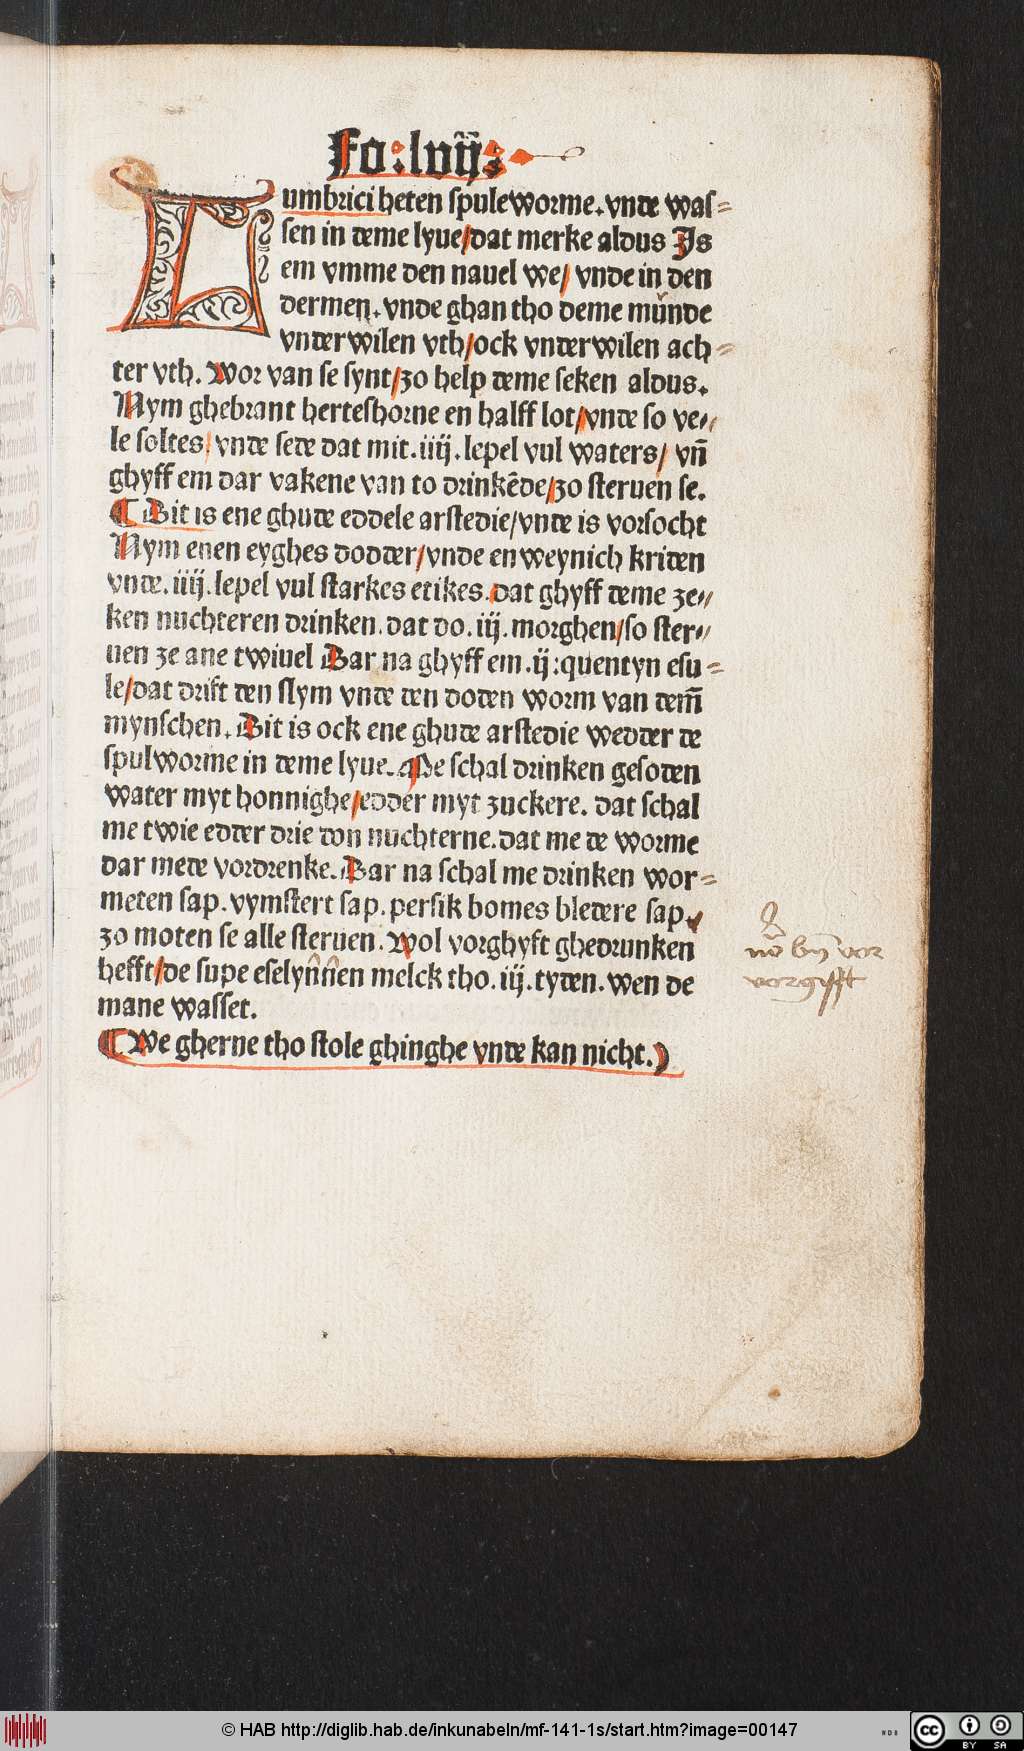 Fo: lvij:
Lumbrici heten spuleworme. vnde was=
sen in deme lyue/dat merke aldus Is
em vmme den nauel we/ vnde in den
dermen. vnde ghan tho deme můnde
vnderwilen vth/ock vnderwilen ach=
ter vth. Wor van se synt/zo help deme seken aldus.
Nym ghebrant herteshorne en halff lot/vnde so ve=
le soltes/ vnde sede dat mit. iiij. lepel vul waters/ vn̄
ghyff em dar vakene van to drinkēde/zo steruen se.
¶ Dit is ene ghude eddele arstedie/vnde is vorsocht
Nym enen eyghes dodder/vnde en weynich kriden
vnde. iiij. lepel vul starkes etikes. dat ghyff deme ze=
ken nuchteren drinken. dat do. iij. morghen/so ster=
uen ze ane twiuel Dar na ghyff em. ij: quentyn esu=
le/dat drift den slym vnde den doden worm van dem̄
mynschen. Dit is ock ene ghude arstedie wedder de
spulworme in deme lyue. Me schal drinken gesoden
water myt honnighe/edder myt zuckere. dat schal
me twie edder drie don nuchterne. dat me de worme
dar mede vordrenke. Dar na schal me drinken wor=
meten sap. vymstert sap. persik bomes bledere sap.
zo moten se alle steruen. Wol vorghyft ghedrunken
hefft/de supe eselyn̄n̄en melck tho. iij. tyden. wen de
mane wasset.
¶ We gherne tho stole ghinghe vnde kan nicht.)
vor
vorgyfft
© HAB http://diglib.hab.de/inkunabeln/mf-141-1s/start.htm?image=00147
WDB
cc
BY SA